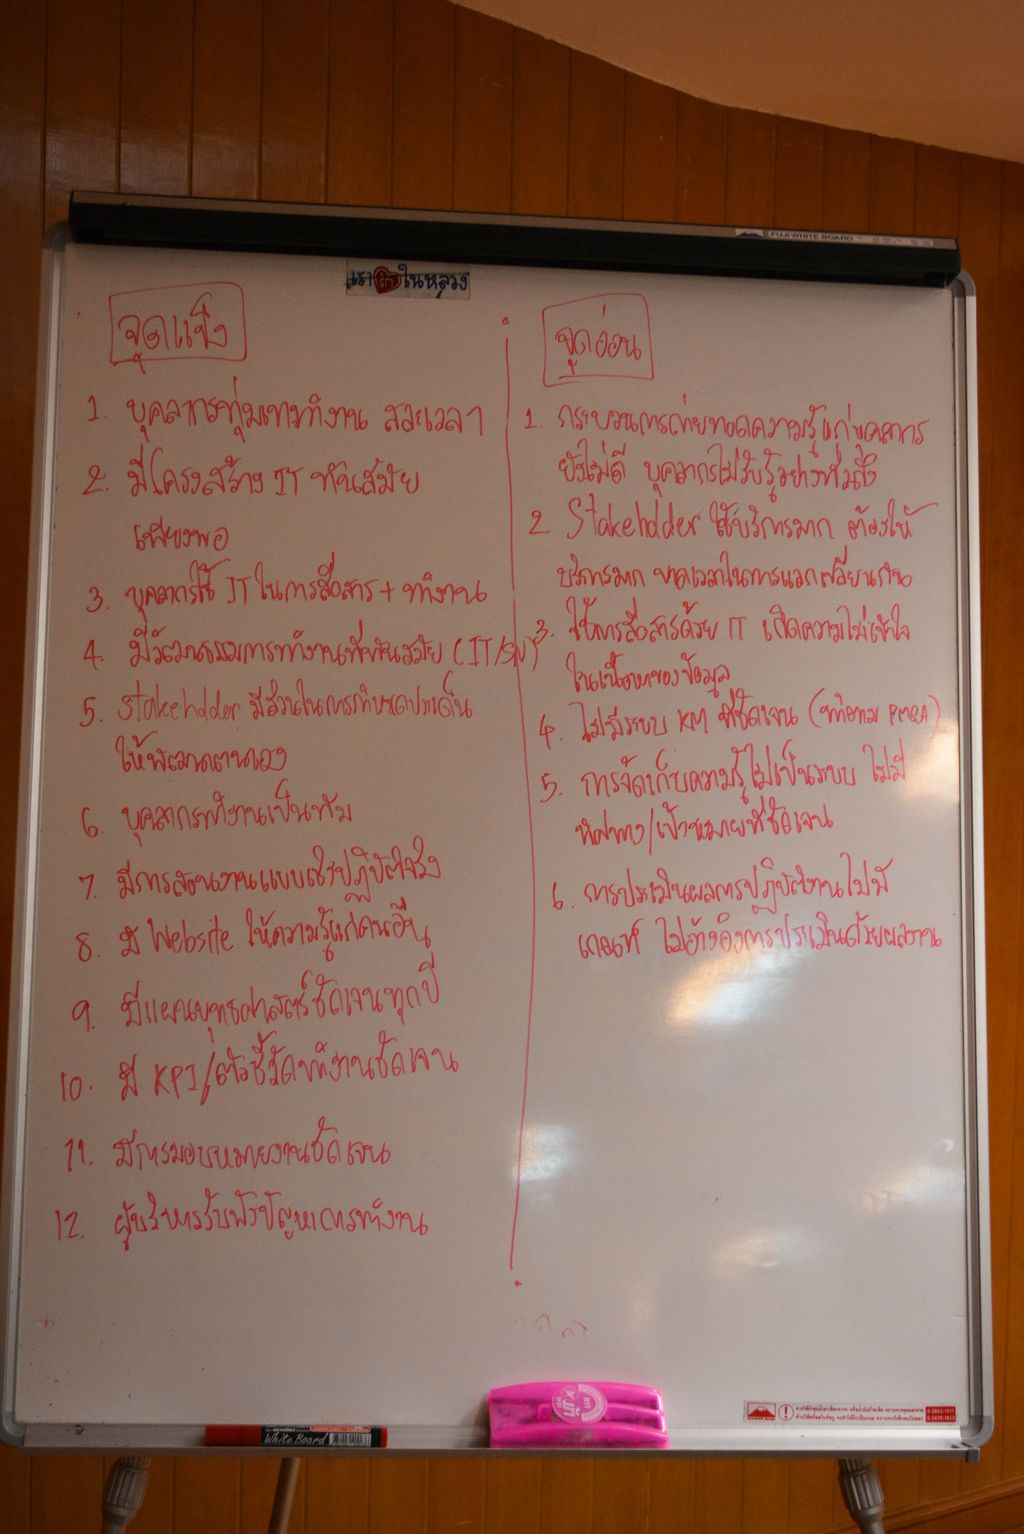 FUJI WHITE BOARD
เรา รัก ในหลวง
จุดแข็ง
1. บุคลากรทุ่มเททำงาน สละเวลา
2. มีโครงสร้าง IT ทันสมัย
เพียงพอ
3. บุคลากรใช้ IT ในการสื่อสาร + ทำงาน
4. มีวัฒนธรรมการทำงานที่ทันสมัย (IT/SN)
5. Stakeholder มีส่วนในการกำหนดประเด็น
ให้พัฒนาตนเอง
6. บุคลากรทำงานเป็นทีม
7. มีการสอนงานแบบเชิงปฏิบัติจริง
8. มี Website ให้ความรู้แก่คนอื่น
9. มีแผนยุทธศาสตร์ชัดเจนทุกปี
10. มี KPI/ตัวชี้วัดทำงานชัดเจน
11. มีการมอบหมายงานชัดเจน
12. ผู้บริหารรับฟังปัญหาการทำงาน
จุดอ่อน
1. กระบวนการถ่ายทอดความรู้แก่บุคลากร
ยังไม่ดี บุคลากรไม่รับรู้อย่างทั่วถึง
2 Stakeholder ใช้บริการมาก ต้องให้
บริการมาก ขาดเวลาในการแลกเปลี่ยนกัน
3. ใช้การสื่อสารด้วย IT เกิดความไม่เข้าใจ
ในเนื้อหาของข้อมูล
4. ไม่มีระบบ KM ที่ชัดเจน (ทำตาม PMQA)
5. การจัดเก็บความรู้ไม่เป็นระบบ ไม่มี
ทิศทาง/เป้าหมายที่ชัดเจน
6. การประเมินผลการปฏิบัติงานไม่มี
เกณฑ์ ไม่อ้างอิงการประเมินด้วยผลงาน
White Board